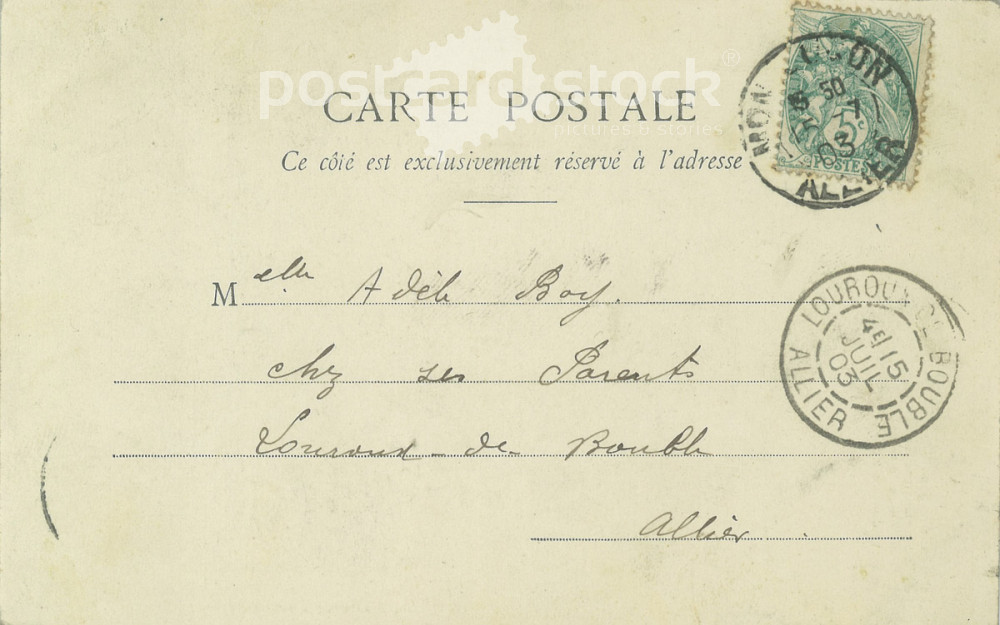 postcardstock®
pictures & stories
CARTE POSTALE
Ce côié est exclusivement réservé à l'adresse
POSTES
03
ALLIER
Melle Adèle Boy.
LOUROUX DE BOUBLE
4E 15
JUIL
03
ALLIER
chez ses Parents
Louroux-de-Bouble
Allier